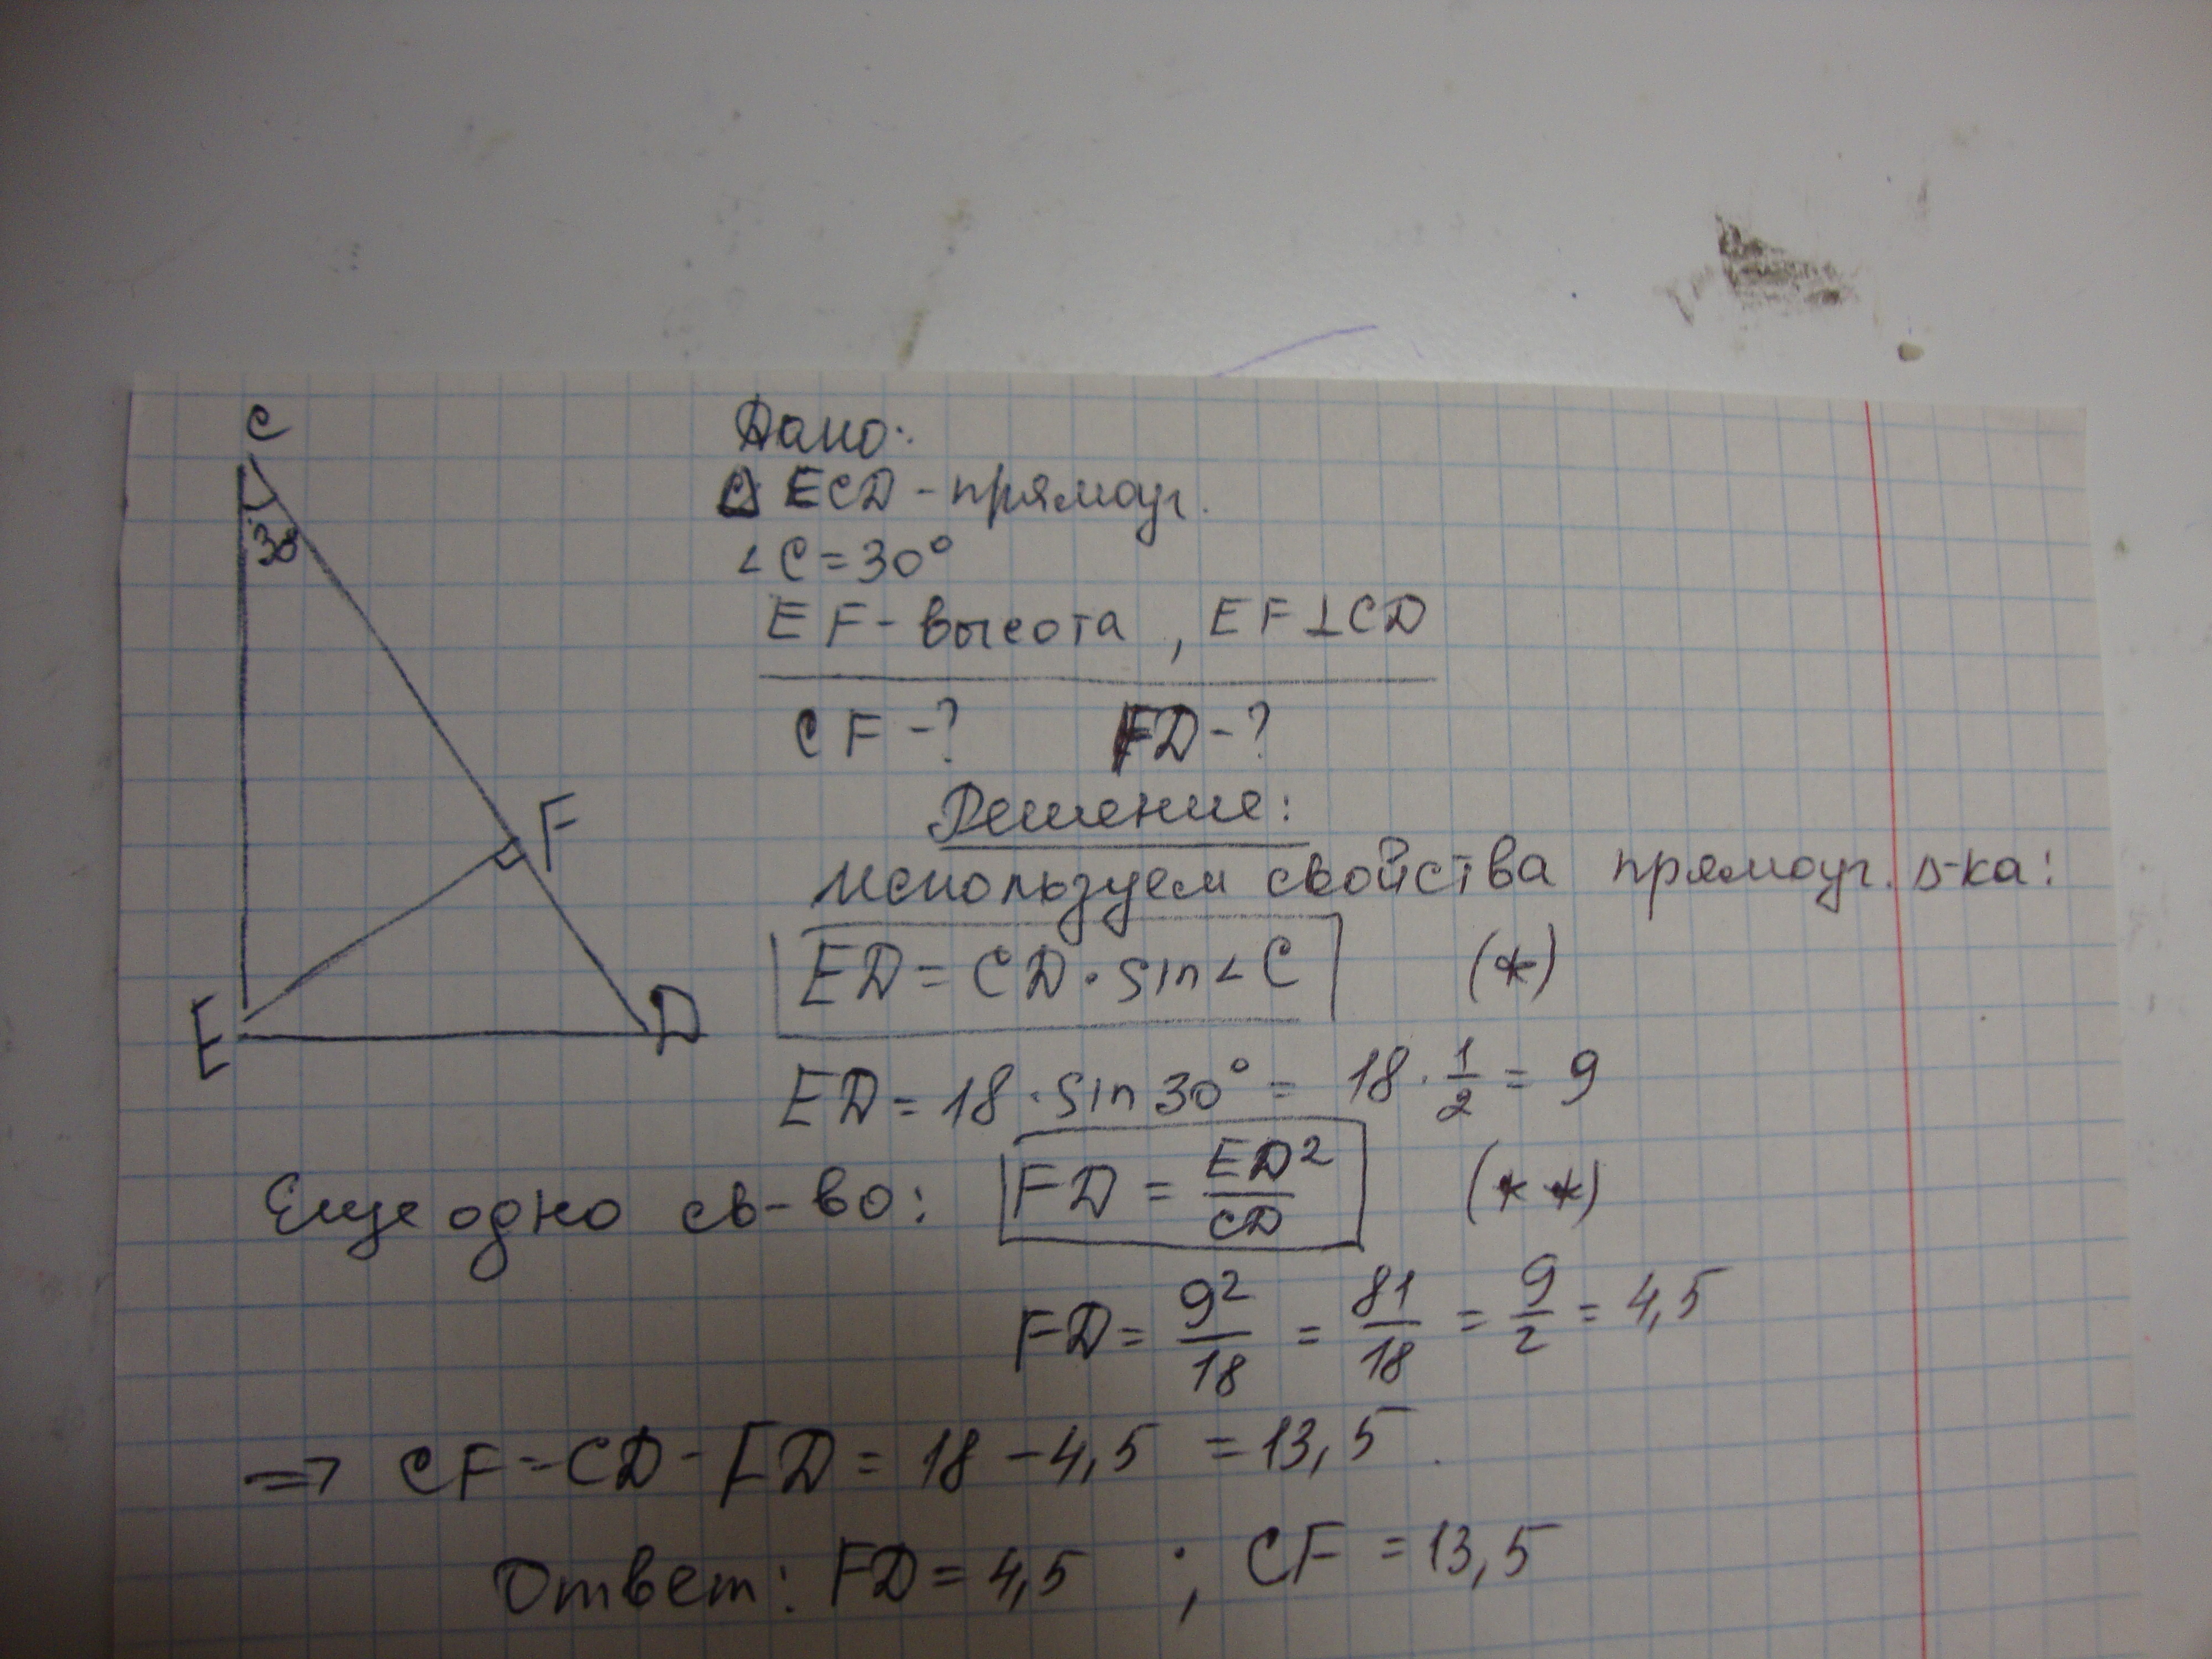 C
30
F
E
D
Дано:
△ ECD - прямоуг.
∠C = 30°
EF - высота, EF⊥CD
CF - ? FD - ?
Решение:
используем свойства прямоуг. Δ-ка:
ED = CD · sin∠C (*)
ED = 18 · sin 30° = 18 · 1/2 = 9
Еще одно св-во: FD = ED²/CD (**)
FD = 9²/18 = 81/18 = 9/2 = 4,5
=> CF = CD - FD = 18 - 4,5 = 13,5.
Ответ: FD = 4,5 ; CF = 13,5